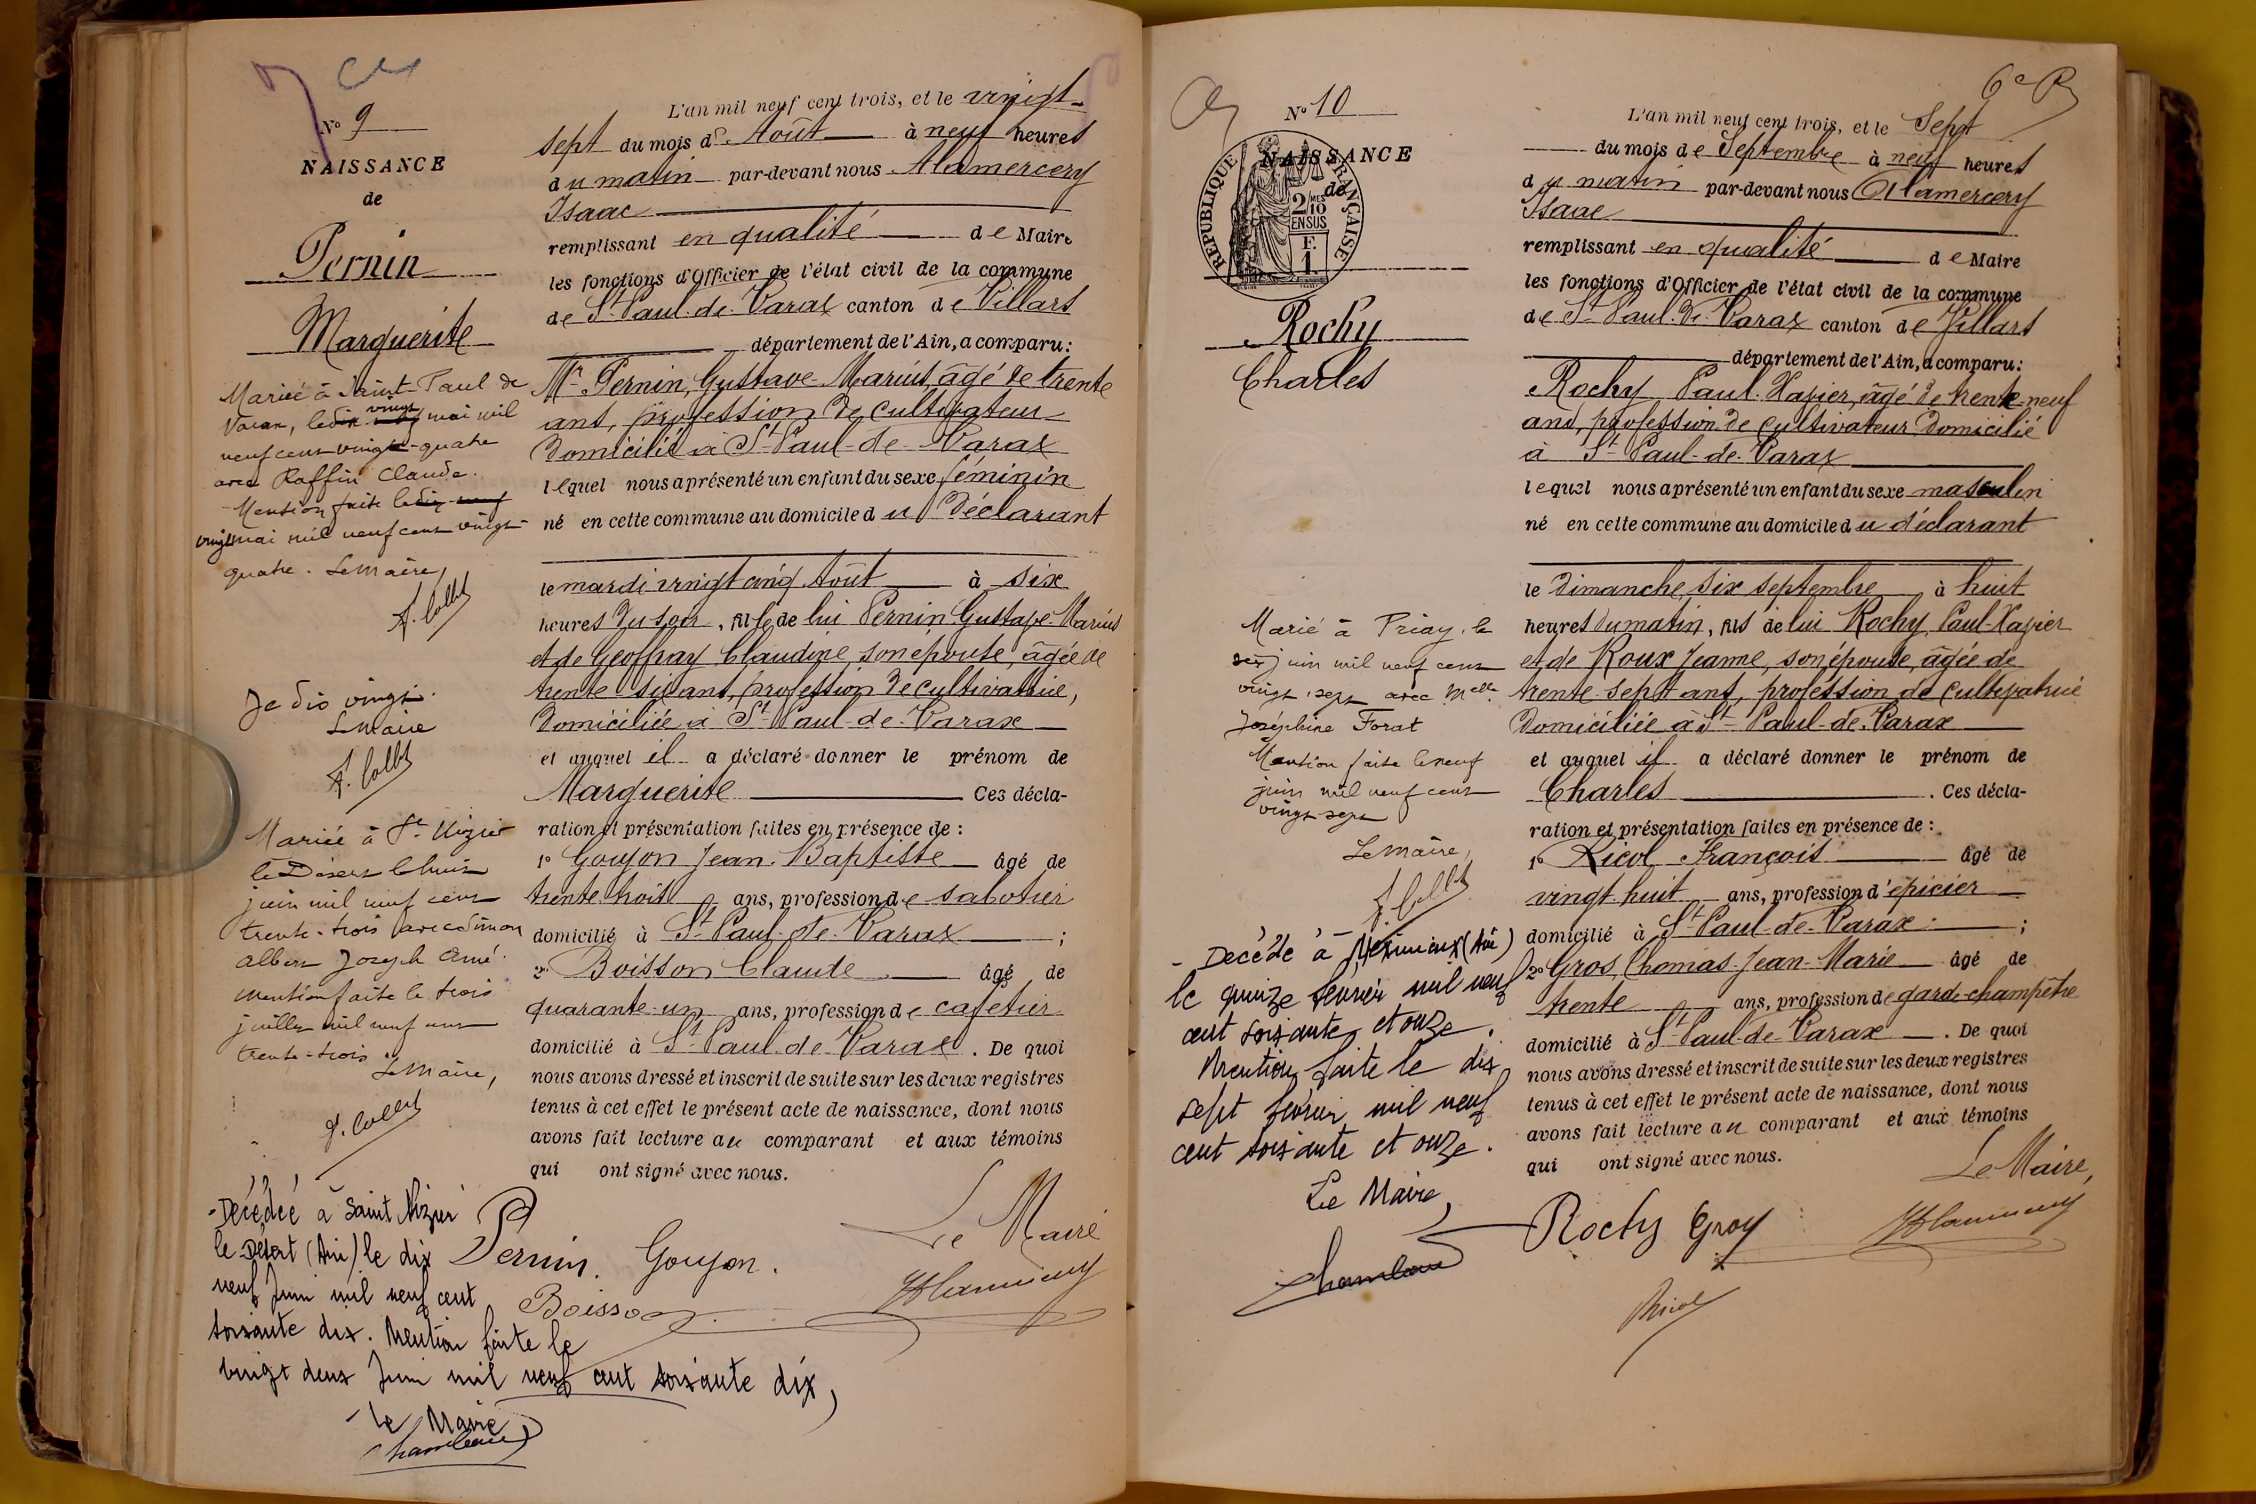 Nº 9
NAISSANCE
de
Pernin
Marguerite
Mariée à Saint-Paul de
Varax, le dix neuf vingt mai mil
neuf cent vingt-quatre
avec Raffin Claude.
Mention faite le dix-neuf
vingt mai mil neuf cent vingt-
quatre. Le Maire,
Je dis vingt.
Le Maire
Mariée à St Nizier
le Désert le huit
juin mil neuf cent
trente-trois avec Simon
Albert Joseph Aimé.
Mention faite le trois
juillet mil neuf cent
trente-trois
Le Maire,
- Décédée à Saint Nizier
le Désert (Ain) le dix
neuf Juin mil neuf cent
soixante dix. Mention faite le
vingt deux Juin mil neuf cent soixante dix,
Le Maire
L'an mil neuf cent trois, et le vingt-
sept du mois d'Août à neuf heures
du matin par-devant nous Alamercery
Isaac
remplissant en qualité de Maire
les fonctions d'Officier de l'état civil de la commune
de St Paul-de-Varax canton de Villars
département de l'Ain, a comparu:
Mr Pernin, Gustave-Marius, âgé de trente
ans, profession de cultivateur
domicilié à St Paul-de-Varax
lequel nous a présenté un enfant du sexe féminin
né en cette commune au domicile du déclarant
le mardi vingt cinq Août à six
heures du soir, fille de lui Pernin Gustave-Marius
et de Geoffray Claudine, son épouse, âgée de
trente-six ans, profession de cultivatrice,
domiciliée à St Paul-de-Varax
et auquel il a déclaré donner le prénom de
Marguerite Ces décla-
ration et présentation faites en présence de :
1º Goujon Jean-Baptiste âgé de
trente trois ans, profession de sabotier
domicilié à St Paul-de-Varax ;
2º Boisson Claude âgé de
quarante-un ans, profession de cafetier
domicilié à St Paul-de-Varax. De quoi
nous avons dressé et inscrit de suite sur les deux registres
tenus à cet effet le présent acte de naissance, dont nous
avons fait lecture au comparant et aux témoins
qui ont signé avec nous.
Le Maire
Pernin. Goujon.
Boisson
6e R
Nº 10
NAISSANCE
de
RÉPUBLIQUE FRANÇAISE
2/10 EN SUS
F. 1.
Rochy
Charles
Marié à Priay, le
six juin mil neuf cent
vingt-sept avec Melle
Joséphine Forat
Mention faite le neuf
juin mil neuf cent
vingt-sept
Le Maire,
- Décédé à Meximieux (Ain)
le quinze février mil neuf
cent soixante et onze.
Mention faite le dix
sept février mil neuf
cent soixante et onze.
Le Maire,
L'an mil neuf cent trois, et le Sept
du mois de Septembre à neuf heures
du matin par-devant nous Alamercery
Isaac
remplissant en qualité de Maire
les fonctions d'Officier de l'état civil de la commune
de St Paul-de-Varax canton de Villars
département de l'Ain, a comparu:
Rochy Paul-Xavier, âgé de trente-neuf
ans, profession de cultivateur domicilié
à St Paul-de-Varax
lequel nous a présenté un enfant du sexe masculin
né en cette commune au domicile du déclarant
le Dimanche, six septembre à huit
heures du matin, fils de lui Rochy, Paul-Xavier
et de Roux Jeanne, son épouse, âgée de
trente-sept ans, profession de cultivatrice
domiciliée à St Paul-de-Varax
et auquel il a déclaré donner le prénom de
Charles . Ces décla-
ration et présentation faites en présence de :
1º Ricol François âgé de
vingt-huit ans, profession d'épicier
domicilié à St Paul-de-Varax ;
2º Gros, Thomas-Jean-Marie âgé de
trente ans, profession de garde-champêtre
domicilié à St Paul-de-Varax. De quoi
nous avons dressé et inscrit de suite sur les deux registres
tenus à cet effet le présent acte de naissance, dont nous
avons fait lecture au comparant et aux témoins
qui ont signé avec nous.
Le Maire,
Rochy Gros
Ricol